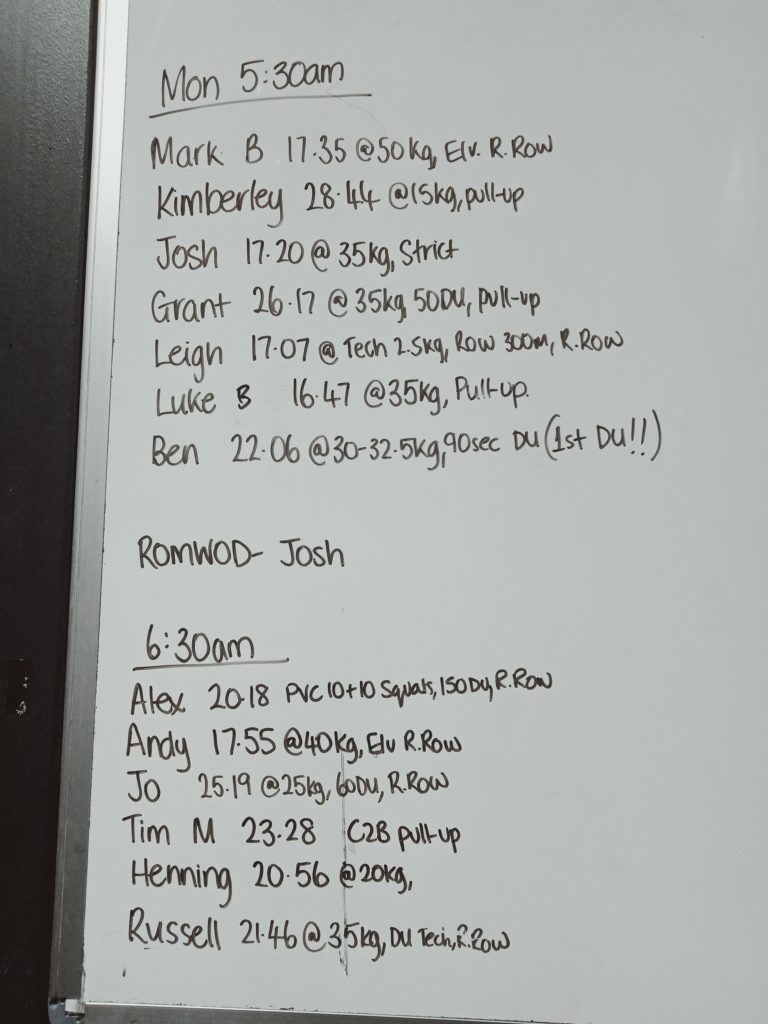 Mon 5:30am
Mark B 17.35 @50kg, Elv. R.Row
Kimberley 28.44 @15kg, pull-up
Josh 17.20 @ 35kg, Strict
Grant 26.17 @ 35kg, 50DU, pull-up
Leigh 17.07 @ Tech 2.5kg, Row 300m, R.Row
Luke B 16.47 @35kg, Pull-up.
Ben 22.06 @30-32.5kg, 90sec DU (1st DU!!)
ROMWOD- Josh
6:30am
Alex 20.18 PVC 10+10 Squats, 150DU, R.Row
Andy 17.55 @40kg, Elv R.Row
Jo 25.19 @25kg, 60DU, R.Row
Tim M 23.28 C2B pull-up
Henning 20.56 @20kg,
Russell 21.46 @35kg, DU Tech, R.Row